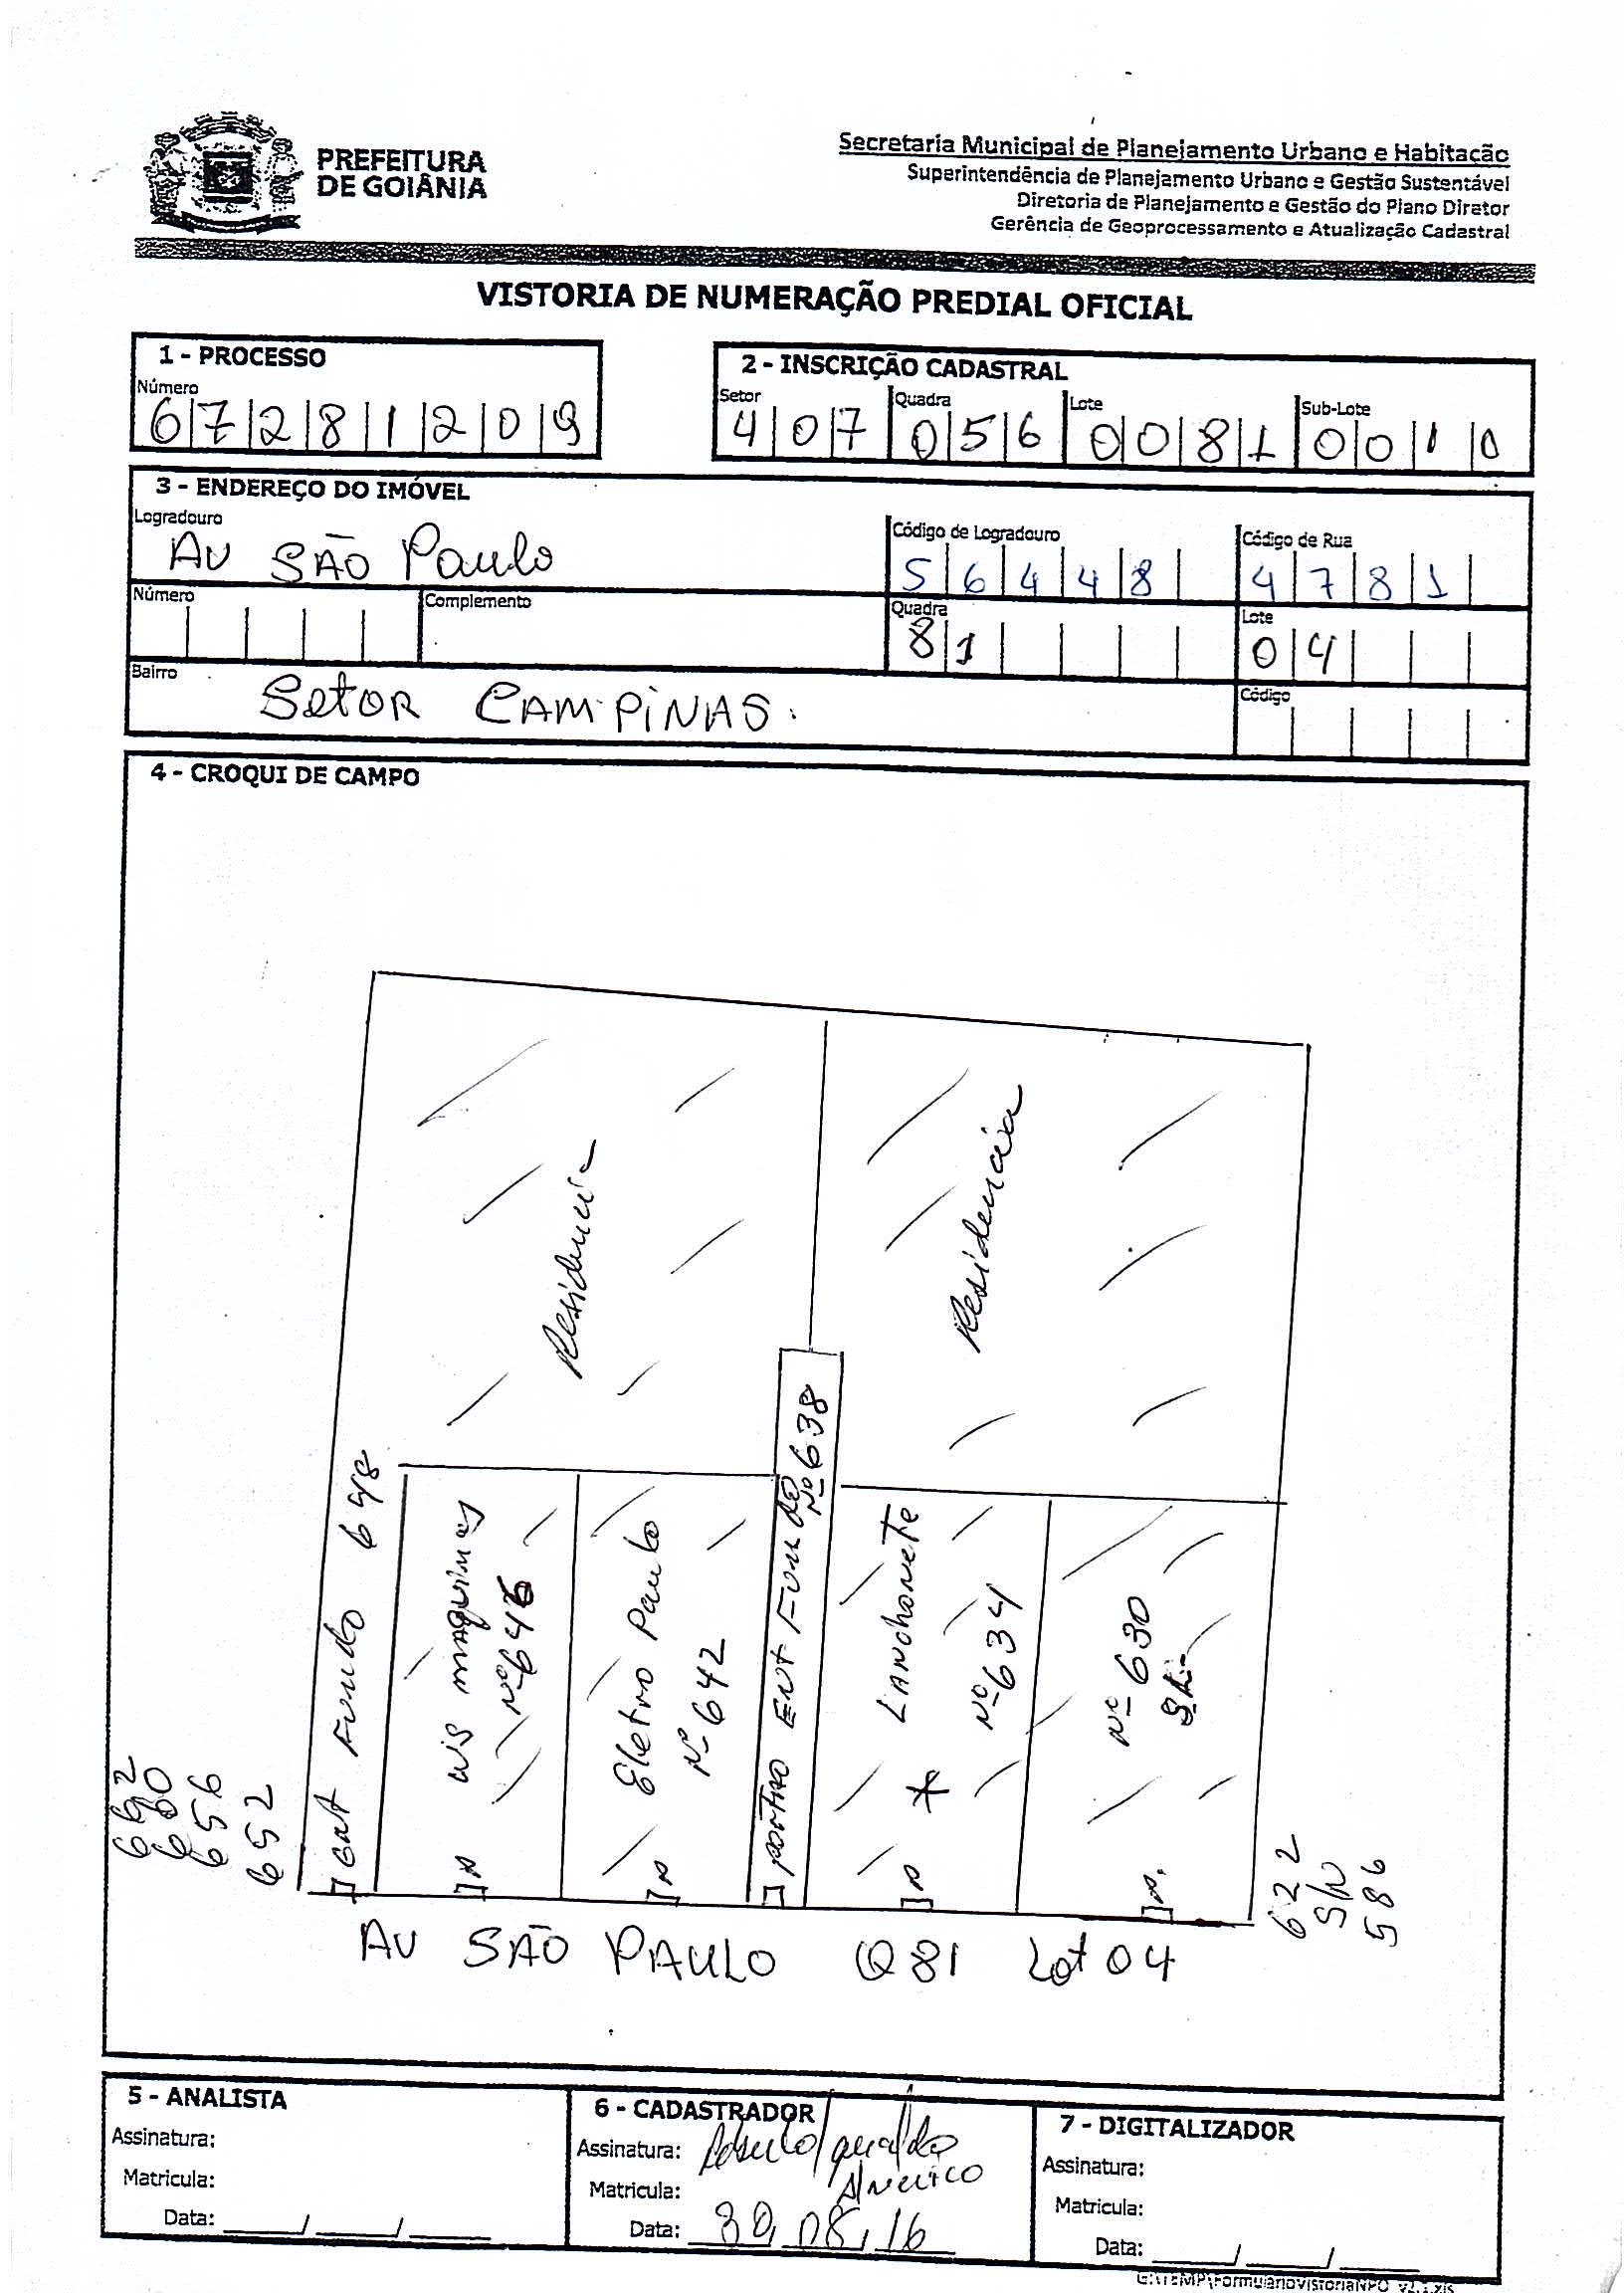 PREFEITURA
DE GOIÂNIA
Secretaria Municipal de Planejamento Urbano e Habitação
Superintendência de Planejamento Urbano e Gestão Sustentável
Diretoria de Planejamento e Gestão do Plano Diretor
Gerência de Geoprocessamento e Atualização Cadastral
VISTORIA DE NUMERAÇÃO PREDIAL OFICIAL
1 - PROCESSO
Número
67281209
2 - INSCRIÇÃO CADASTRAL
Setor Quadra Lote Sub-Lote
407 056 0081 0010
3 - ENDEREÇO DO IMÓVEL
Logradouro Código de Logradouro Código de Rua
AV SÃO Paulo 56448 4781
Número Complemento Quadra Lote
81 04
Bairro Código
Setor CAMPINAS.
4 - CROQUI DE CAMPO
Residencia
Residencia
Ent Fundo 648
WS maquinas
Nº 646
Eletro Paulo
Nº 642
portão ENt Fundo
Nº 638
LANchoneTe
Nº 634
Nº 630
662
660
656
652
622
S/N
586
AV SÃO PAULO Q81 Lot 04
5 - ANALISTA
Assinatura:
Matricula:
Data: ___/___/___
6 - CADASTRADOR
Assinatura:
Matricula:
Data: 30/08/16
7 - DIGITALIZADOR
Assinatura:
Matricula:
Data: ___/___/___
G:\TEMP\FormularioVistoriaNPO_v2.1.xls